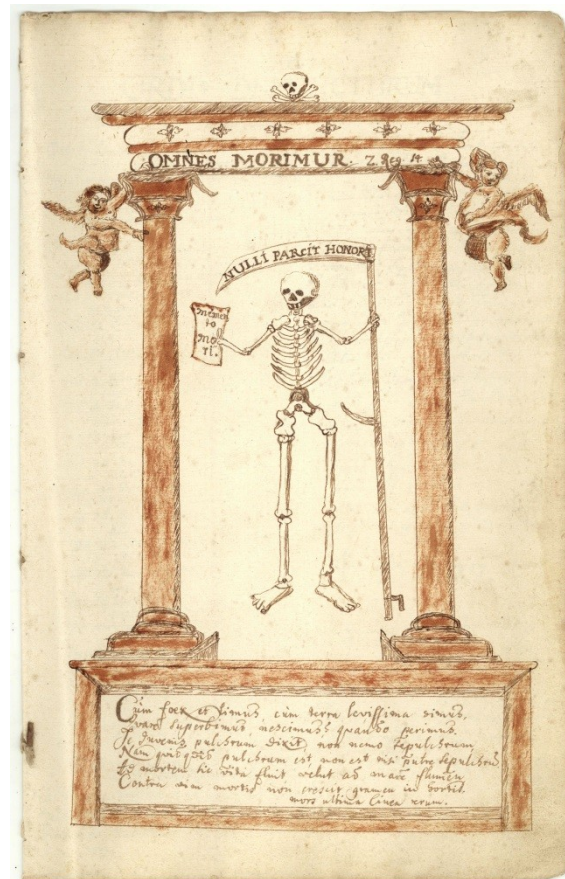 OMNES MORIMUR. 2. Reg 14
NULLI PARCIT HONORI
memen
to
mo
ri.
Cùm foex et fimus, cùm terra levissima simus,
Quare superbimus, nescimus quando perimus.
Juvenis pulchrum dixit, non nemo sepulchrum,
Nam pulchrum est non est nisi putre sepulchrū
Ad mortem sic vita fluit velut ad mare flumen
Contra vim mortis non crescit gramen in hortis.
mors ultima linea rerum.